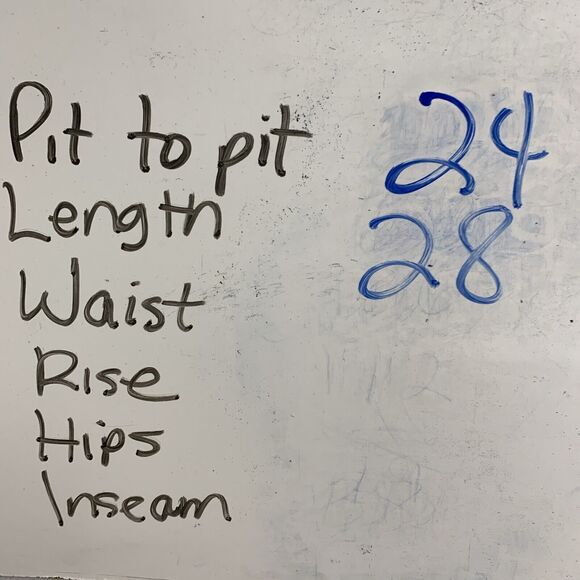 Pit to pit 24
Length 28
Waist
Rise
Hips
Inseam